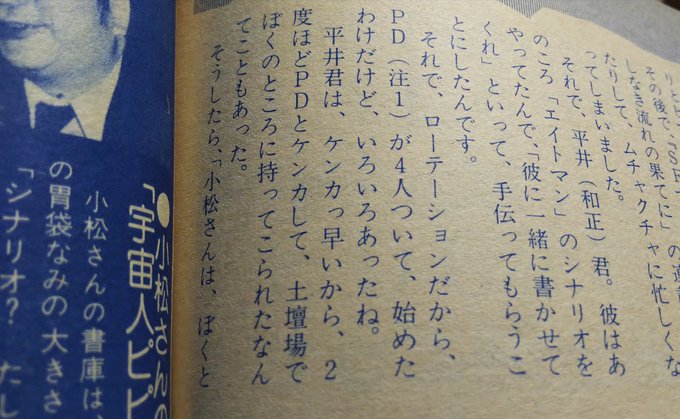 その後で、「SF
しなき流れの果てに」の連載
たりして、ムチャクチャに忙しくな
ってしまいました。
それで、平井（和正）君。彼はあ
のころ「エイトマン」のシナリオを
やってたんで、「彼に一緒に書かせて
くれ」といって、手伝ってもらうこ
とにしたんです。
それで、ローテーションだから、
PD（注1）が4人ついて、始めた
わけだけど、いろいろあったね。
平井君は、ケンカっ早いから、2
度ほどPDとケンカして、土壇場で
ぼくのところに持ってこられたなん
てこともあった。
そうしたら、「小松さんは、ぼくと
●小松さんの
「宇宙人ピピ
小松さんの書庫は、
の胃袋なみの大きさ
「シナリオ？ たし